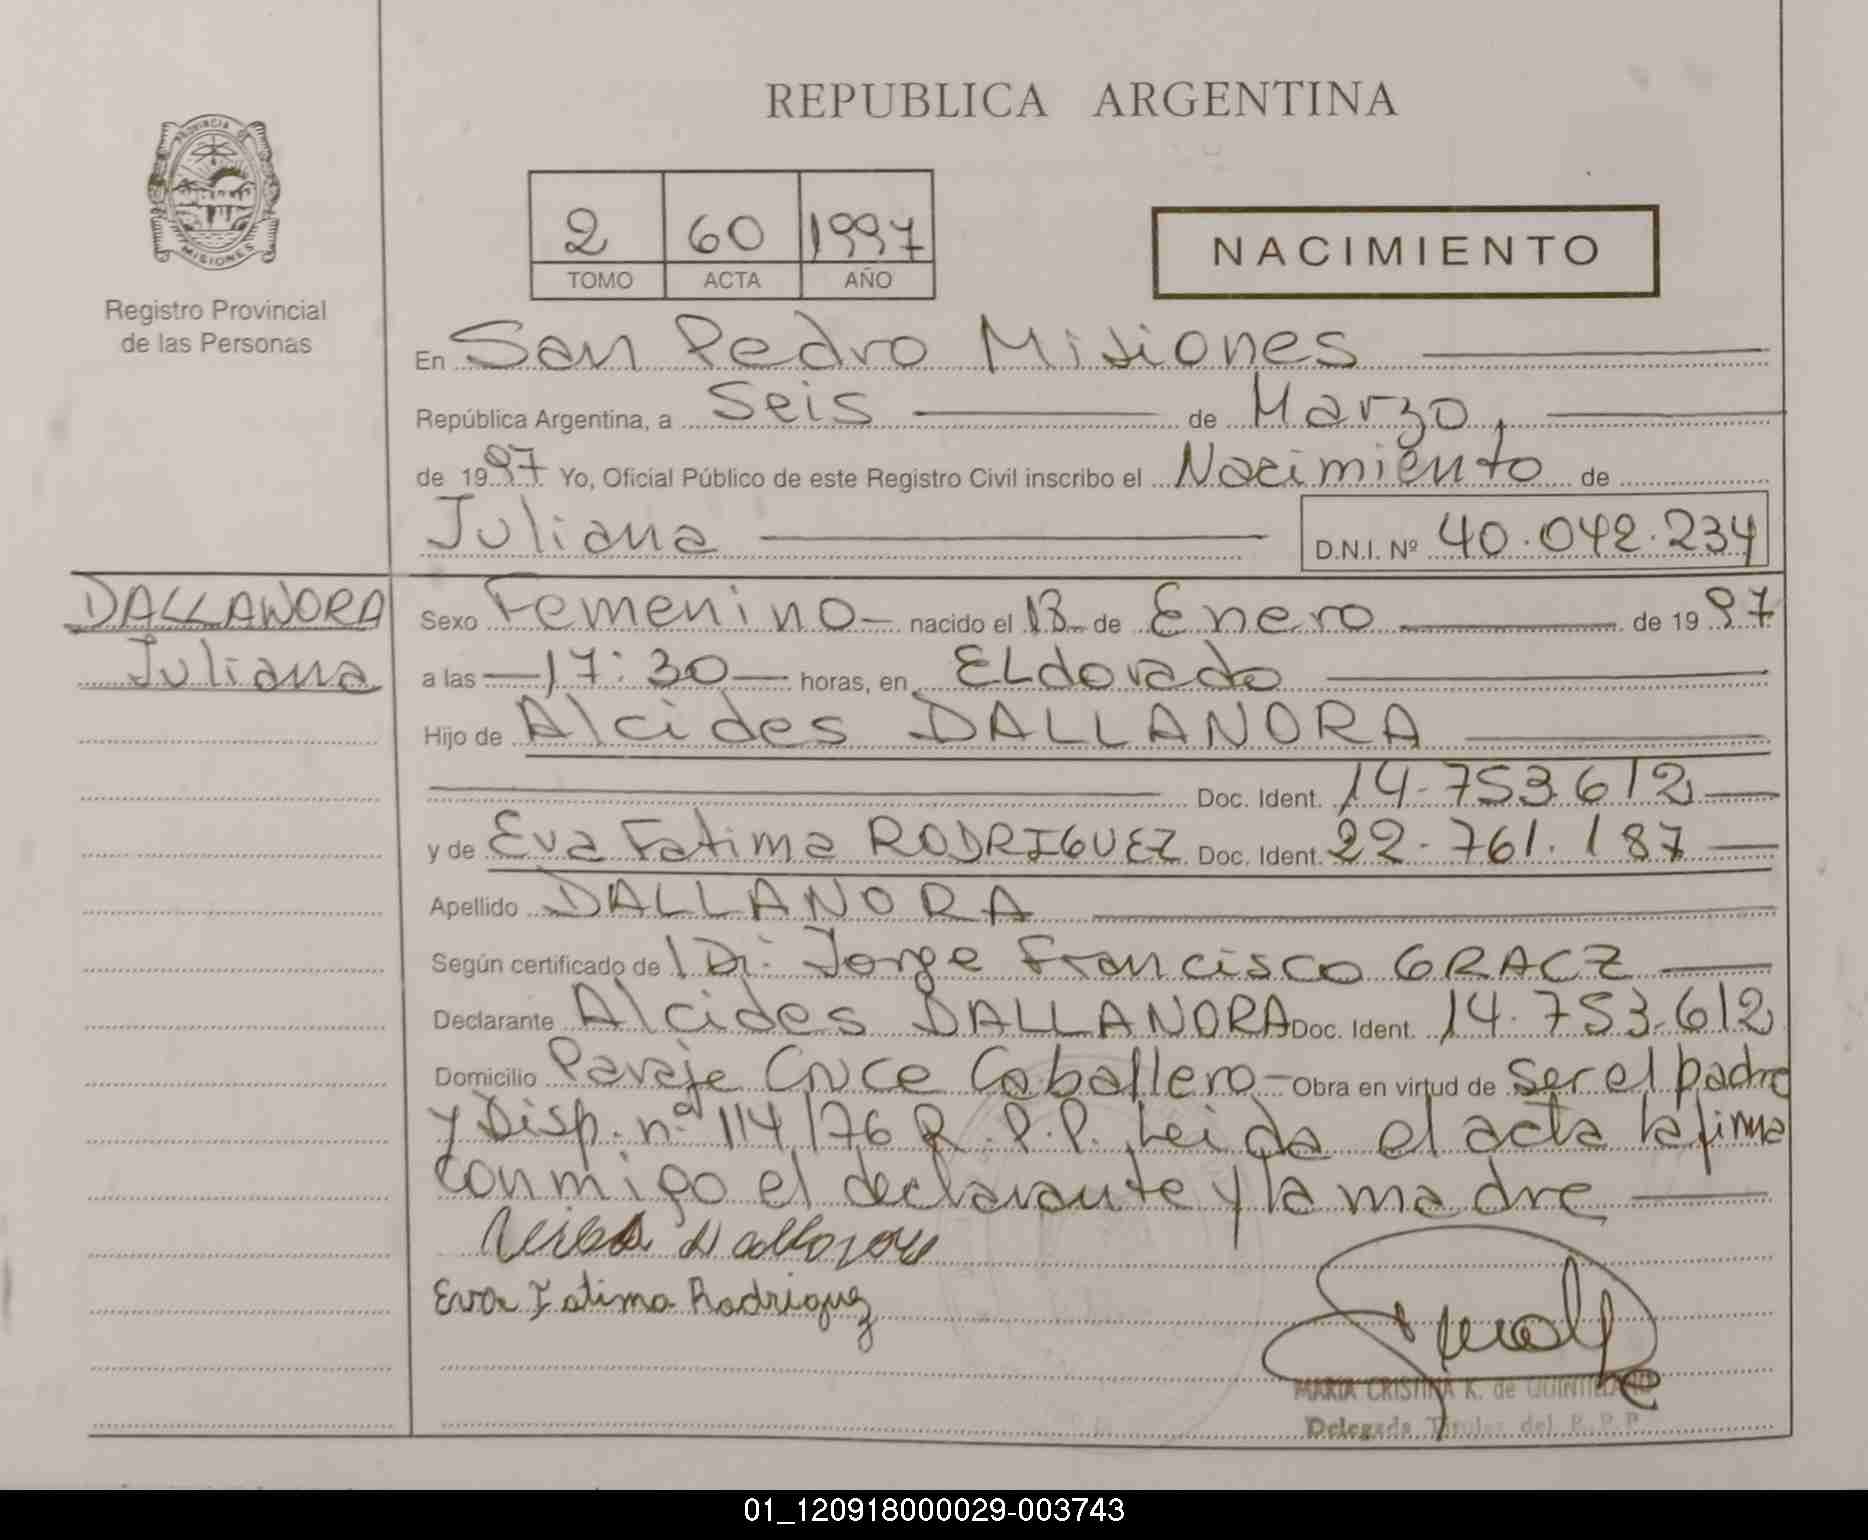 REPUBLICA ARGENTINA
PROVINCIA DE
MISIONES
Registro Provincial
de las Personas
2 60 1997
TOMO ACTA AÑO
NACIMIENTO
En San Pedro Misiones
República Argentina, a Seis de Marzo,
de 1997 Yo, Oficial Público de este Registro Civil inscribo el Nacimiento de
Juliana D.N.I. Nº 40.042.234
DALLANORA
Juliana
Sexo Femenino nacido el 13 de Enero de 1997
a las 17:30 horas, en ELdorado
Hijo de Alcides DALLANORA
Doc. Ident. 14.753.612
y de Eva Fatima RODRIGUEZ Doc. Ident. 22.761.187
Apellido DALLANORA
Según certificado de Jorge Francisco GRACZ
Declarante Alcides DALLANORA Doc. Ident. 14.753.612
Domicilio Paraje Cruce Caballero Obra en virtud de ser el padre
y Disp. nº 114/76 R.P.P. Leida el acta la firma
conmigo el declarante y la madre
Eva Fatima Rodriguez
MARIA CRISTINA K. de
Delegada Titular del R.P.P.
01_120918000029-003743